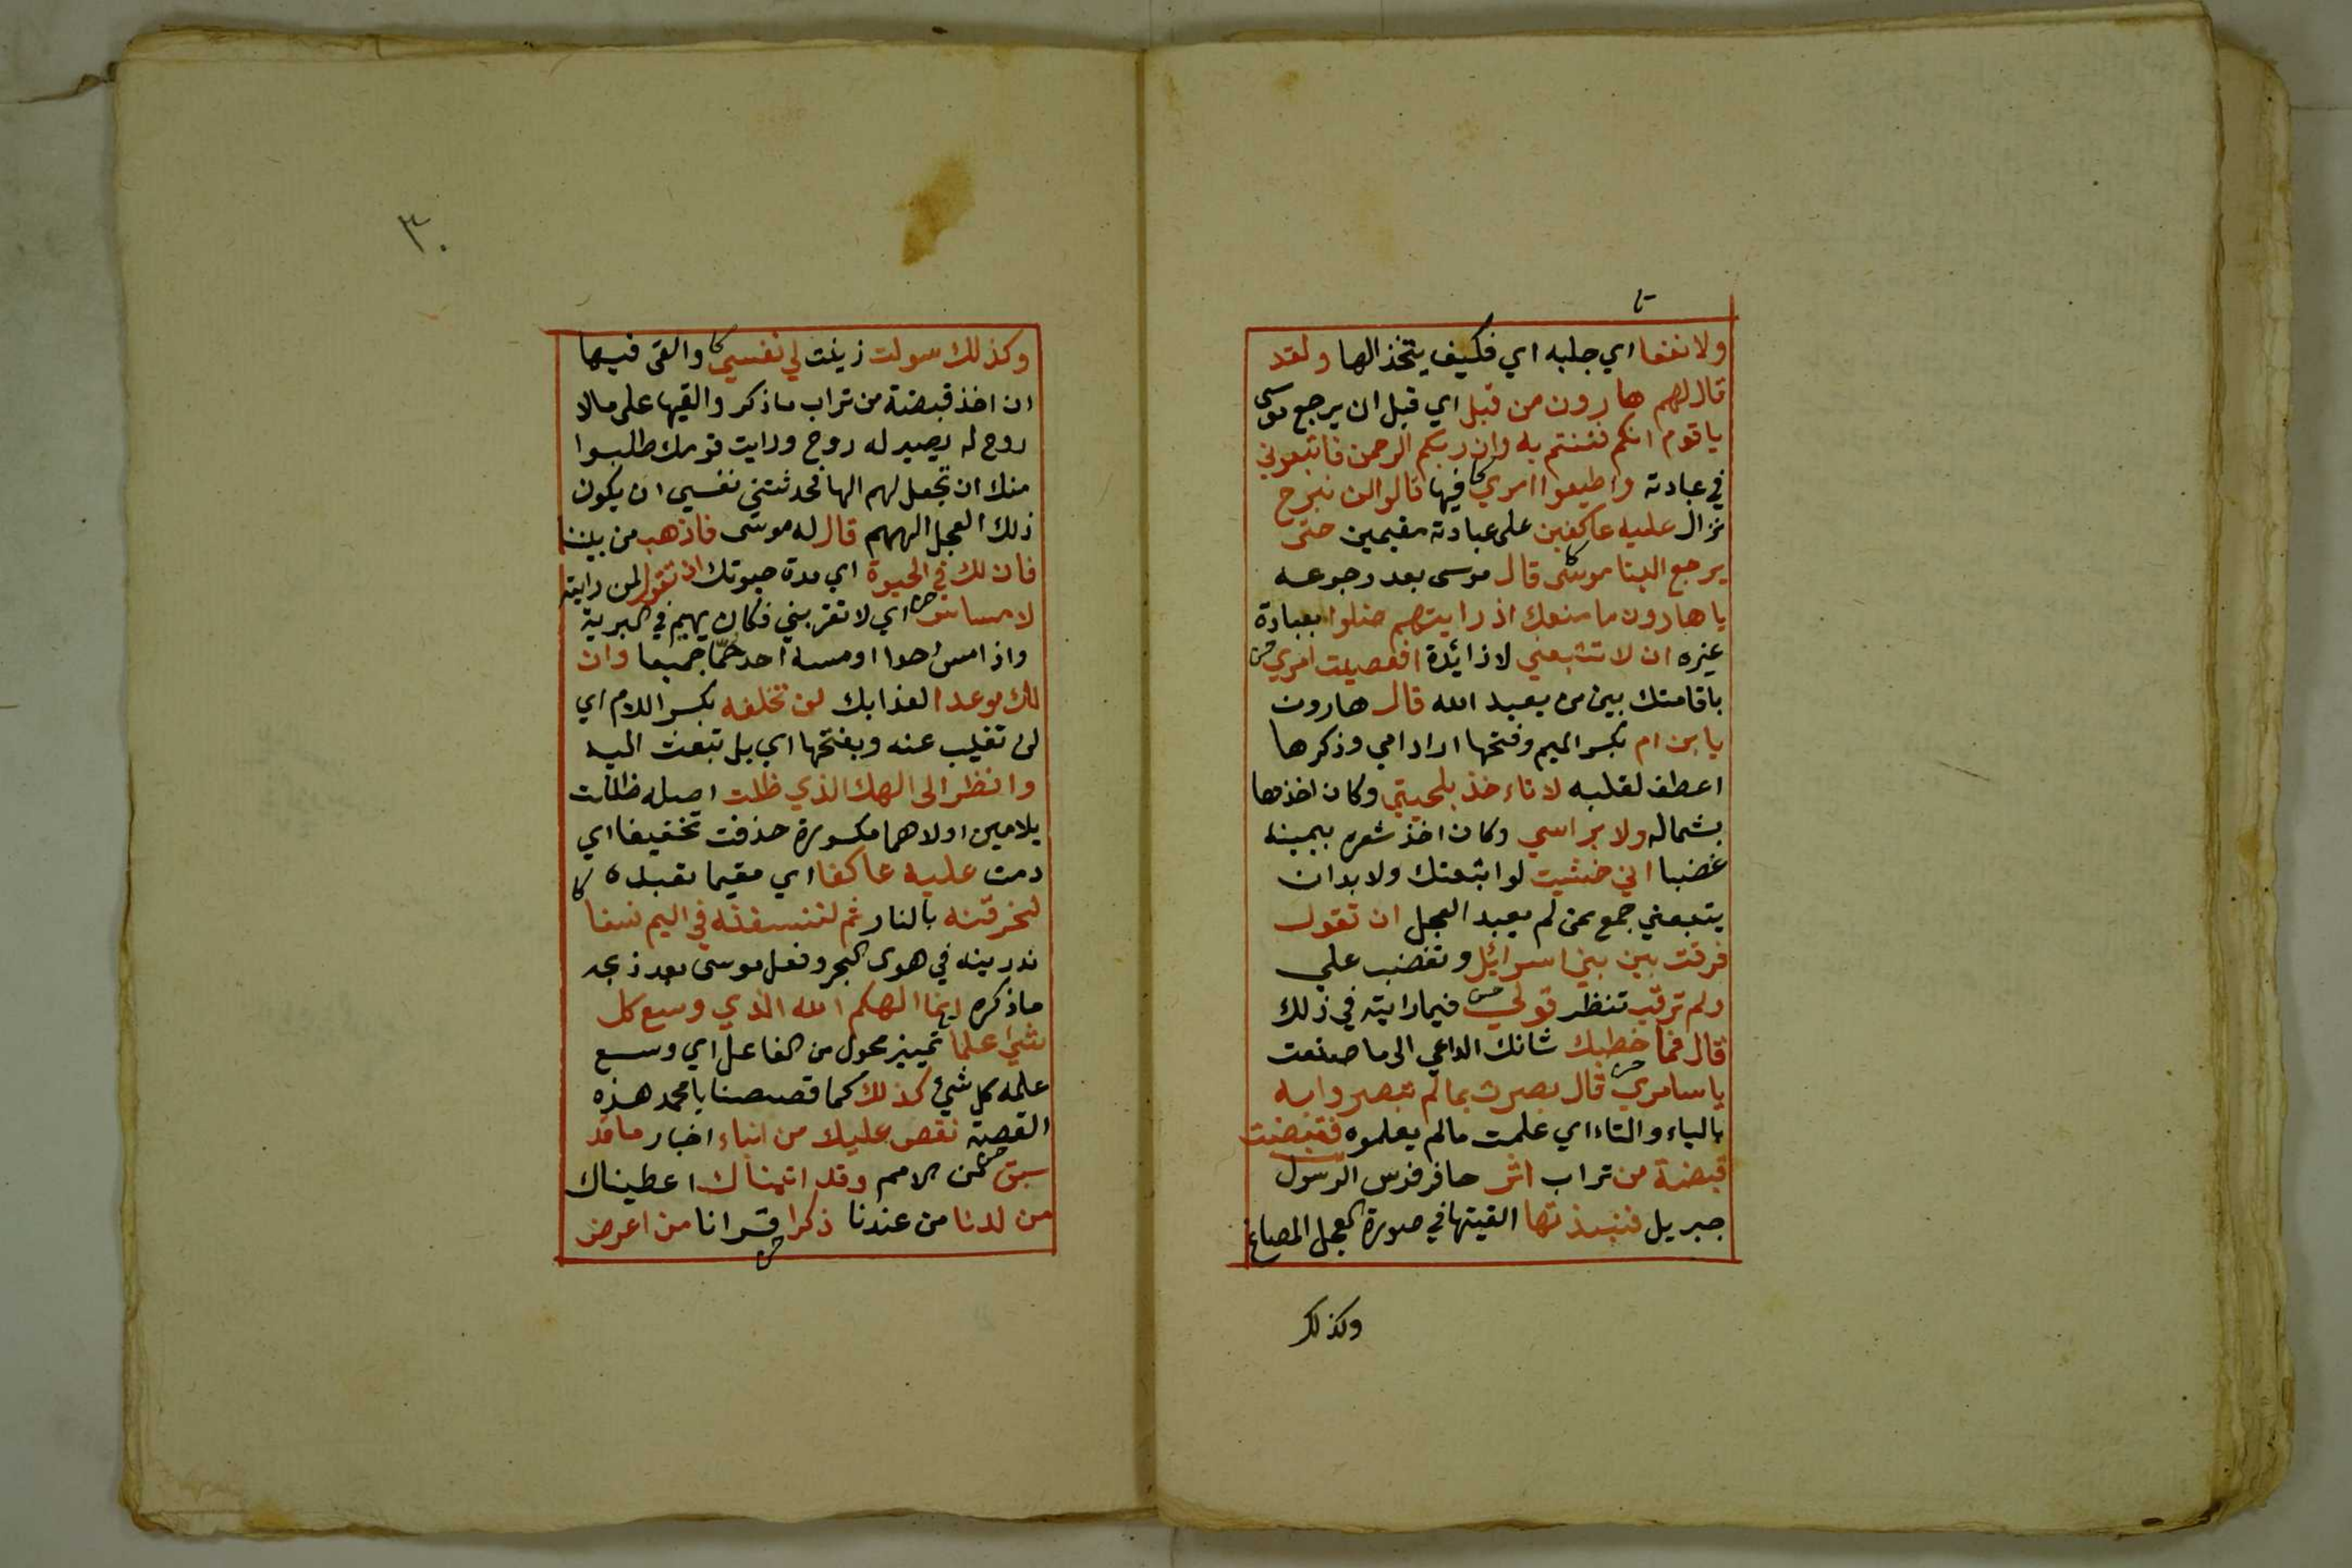 ولا نفعا اي جلبه اي فكيف يتخذ الها ولقد
قال لهم هارون من قبل اي قبل ان يرجع موسى
يا قوم انكم فتنتم به وان ربكم الرحمن فاتبعوني
في عبادته واطيعوا امري فيها قالوا لن نبرح
نزال عليه عاكفين على عبادته مقيمين حتى
يرجع الينا موسى قال موسى بعد رجوعه
يا هارون ما منعك اذ رايتهم ضلوا بعبادة
غيره ان لا تتبعني لا زائدة افعصيت امري
باقامتك بين من يعبد الله قال هارون
يا بن ام بكسر الميم وفتحها اراد امي وذكرها
اعطف لقلبه لا تاءخذ بلحيتي وكان اخذها
بشماله ولا براسي وكان اخذ شعره بيمينه
غضبا اني خشيت لو اتبعتك ولا بد ان
يتبعني جمع ممن لم يعبد العجل ان تقول
فرقت بين بني اسرائيل وتغضب علي
ولم ترقب تنظر قولي فيما رايته في ذلك
قال فما خطبك شانك الداعي الى ما صنعت
يا سامري قال بصرت بما لم تبصروا به
بالياء والتاء اي علمت ما لم يعلموه فقبضت
قبضة من تراب اثر حافر فرس الرسول
جبريل فنبذتها القيتها في صورة العجل المصاغ
وكذلك
٣٠
وكذلك سولت زينت لي نفسي والقى فيها
ان اخذ قبضة من تراب ما ذكر والقيها على ما لا
روح له يصير له روح ورايت قومك طلبوا
منك ان تجعل لهم الها فحدثتني نفسي ان يكون
ذلك العجل الههم قال له موسى فاذهب من بيننا
فان لك في الحيوة اي مدة حيوتك ان تقول لمن رايته
لا مساس اي لا تقربني فكان يهيم في البرية
واذا مس احدا او مسه احد حما جميعا وان
لك موعدا لعذابك لن تخلفه بكسر اللام اي
لن تغيب عنه وبفتحها اي بل تبعث اليه
وانظر الى الهك الذي ظلت اصله ظللت
بلامين اولاهما مكسورة حذفت تخفيفا اي
دمت عليه عاكفا اي مقيما تعبده
لنحرقنه بالنار ثم لننسفنه في اليم نسفا
نذرينه في هوى البحر وفعل موسى بعد ذبحه
ما ذكره انما الهكم الله الذي وسع كل
شئ علما تمييز محول من الفاعل اي وسع
علمه كل شئ كذلك كما قصصنا يا محمد هذه
القصة نقص عليك من انباء اخبار ما قد
سبق من الامم وقد اتيناك اعطيناك
من لدنا من عندنا ذكرا قرانا من اعرض